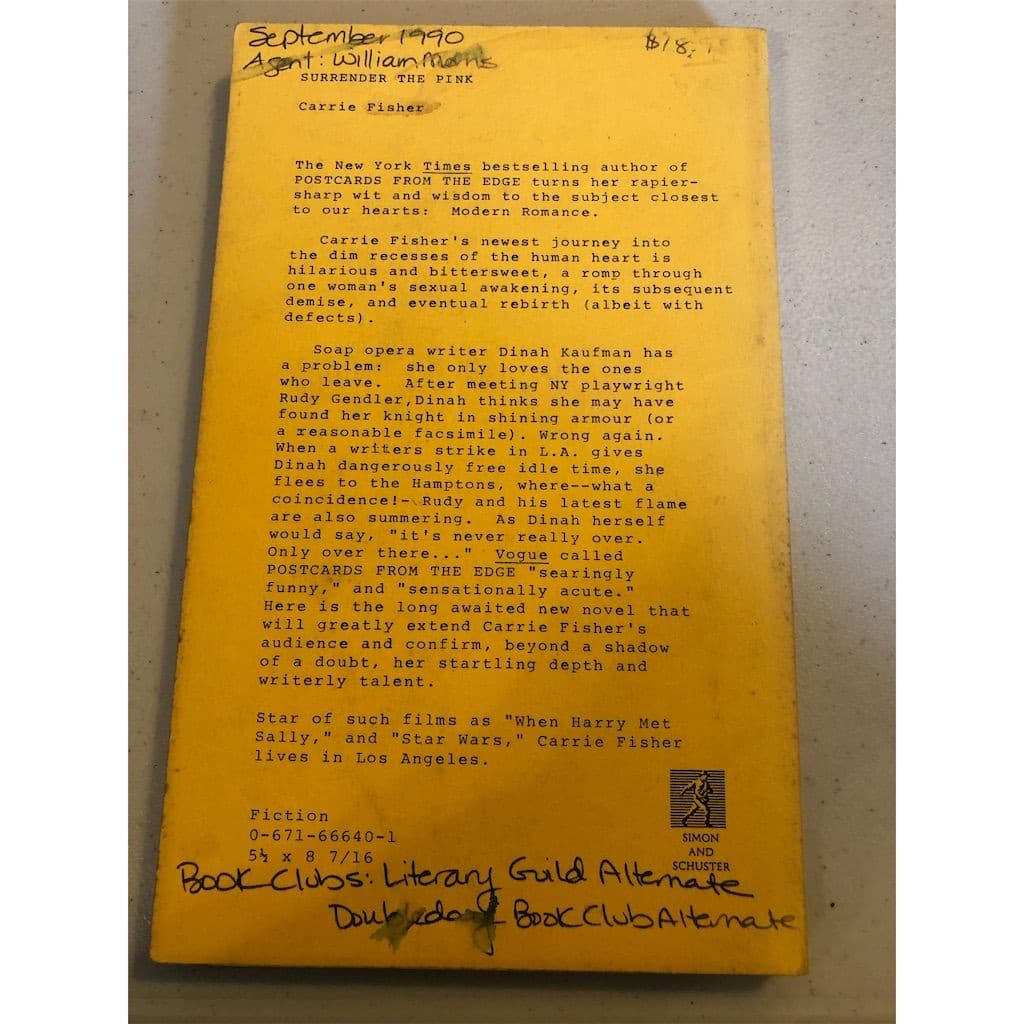 September 1990
$18.95
Agent: William Morris
SURRENDER THE PINK
Carrie Fisher
The New York Times bestselling author of
POSTCARDS FROM THE EDGE turns her rapier-
sharp wit and wisdom to the subject closest
to our hearts: Modern Romance.
Carrie Fisher's newest journey into
the dim recesses of the human heart is
hilarious and bittersweet, a romp through
one woman's sexual awakening, its subsequent
demise, and eventual rebirth (albeit with
defects).
Soap opera writer Dinah Kaufman has
a problem: she only loves the ones
who leave. After meeting NY playwright
Rudy Gendler,Dinah thinks she may have
found her knight in shining armour (or
a reasonable facsimile). Wrong again.
When a writers strike in L.A. gives
Dinah dangerously free idle time, she
flees to the Hamptons, where--what a
coincidence!- Rudy and his latest flame
are also summering. As Dinah herself
would say, "it's never really over.
Only over there..." Vogue called
POSTCARDS FROM THE EDGE "searingly
funny," and "sensationally acute."
Here is the long awaited new novel that
will greatly extend Carrie Fisher's
audience and confirm, beyond a shadow
of a doubt, her startling depth and
writerly talent.
Star of such films as "When Harry Met
Sally," and "Star Wars," Carrie Fisher
lives in Los Angeles.
Fiction
0-671-66640-1
5½ x 8 7/16
SIMON
AND
SCHUSTER
Book Clubs: Literary Guild Alternate
Doubleday Book Club Alternate